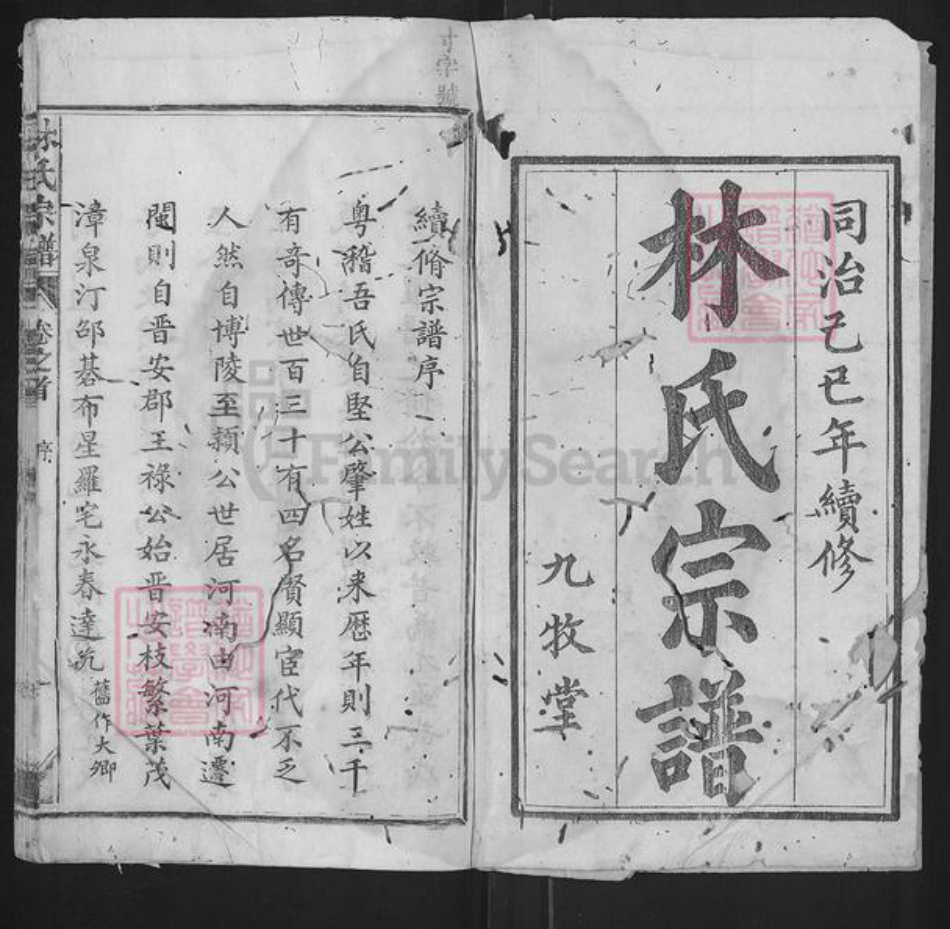 同治己巳年續修
林氏宗譜
九牧堂
續脩宗譜序
粤稽吾氏自堅公肇姓以来歷年則三千
有奇傳世百三十有四名賢顯宦代不乏
人然自博陵至潁公世居河南由河南遷
閩則自晋安郡王祿公始晋安枝繁葉茂
漳泉汀邵碁布星羅宅永春達𠫵
舊作大卿
林氏宗譜
卷之首
序
FamilySearch